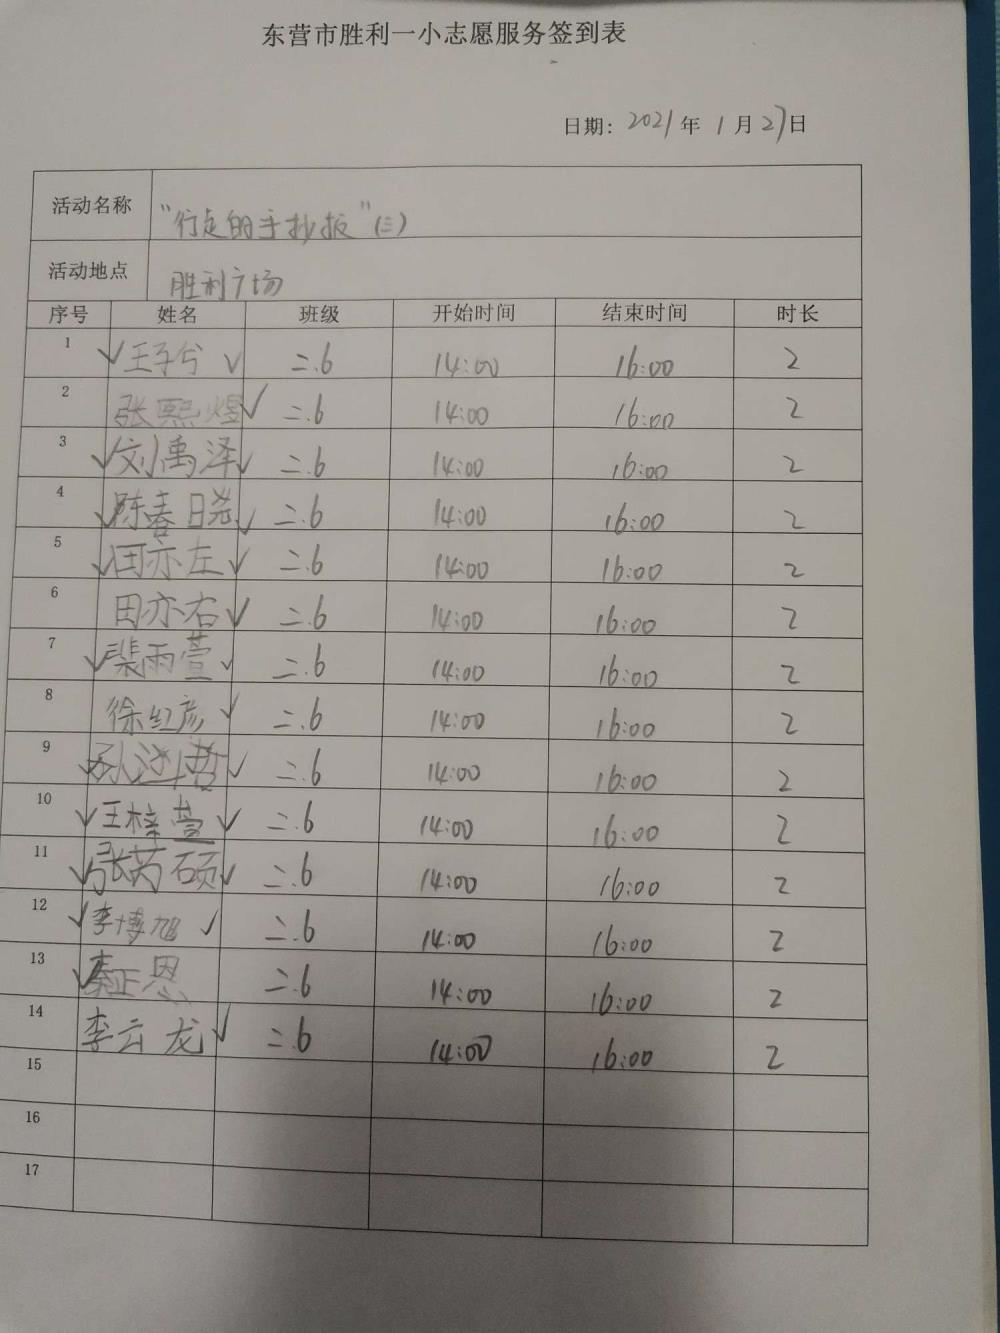 东营市胜利一小志愿服务签到表
日期: 2021 年 1 月 27 日
活动名称 "行走的手抄报"(三)
活动地点 胜利广场
序号 姓名 班级 开始时间 结束时间 时长
1 √ 王子兮 √ 二.6 14:00 16:00 2
2 张熙煜 √ 二.6 14:00 16:00 2
3 √ 刘禹泽 √ 二.6 14:00 16:00 2
4 √ 陈春晓 √ 二.6 14:00 16:00 2
5 √ 田亦左 √ 二.6 14:00 16:00 2
6 田亦右 √ 二.6 14:00 16:00 2
7 √ 裴雨萱 √ 二.6 14:00 16:00 2
8 徐红彦 √ 二.6 14:00 16:00 2
9 √ 孙 哲 √ 二.6 14:00 16:00 2
10 √ 王梓萱 √ 二.6 14:00 16:00 2
11 √ 张芮硕 √ 二.6 14:00 16:00 2
12 √ 李博旭 √ 二.6 14:00 16:00 2
13 √ 正恩 二.6 14:00 16:00 2
14 李云龙 √ 二.6 14:00 16:00 2
15
16
17